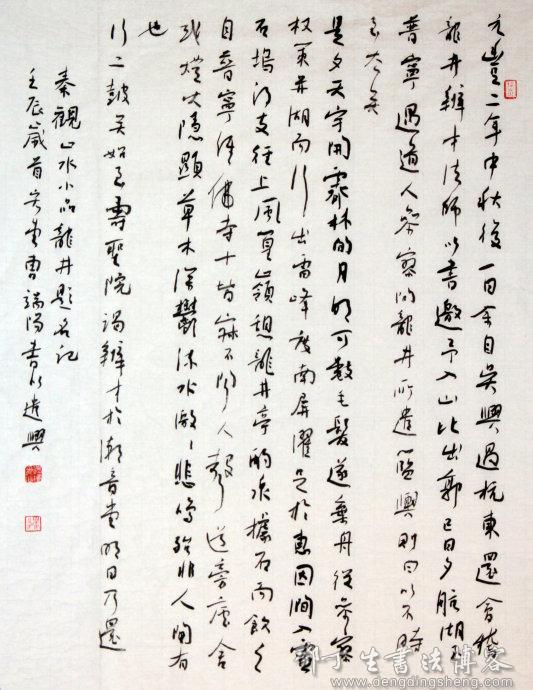 元豐二年中秋後一日余自吳興過杭東還會稽
龍井辨才法師以書邀予入山比出郭已日夕航湖至
普寧遇道人參寥問龍井所遣籃輿則曰以不時
至去矣
是夕天宇開霽林間月明可數毛髮遂棄舟從參寥
杖策並湖而行出雷峰度南屏濯足於惠因澗入靈
石塢得支徑上風篁嶺憩龍井亭酌泉據石而飲之
自普寧經佛寺十皆寂不聞人聲道旁廬舍
或燈火隱顯草木深鬱流水激激悲鳴殆非人間有
也
行二鼓矣始至壽聖院謁辨才於潮音堂明日乃還
秦觀山水小品龍井題名記
壬辰歲首堂曹端陽書以遣興
邓丁生書法博客
www.dengdingsheng.com